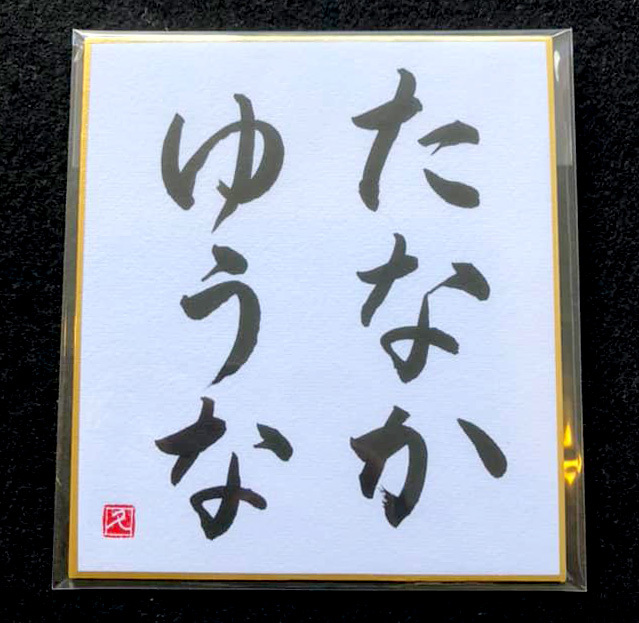 たなか
ゆうな